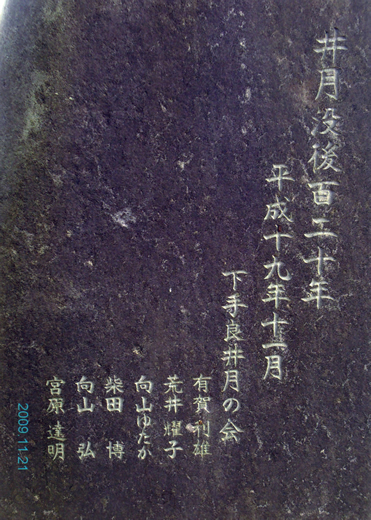 井月没後百二十年
平成十九年十一月
下手良井月の会
有賀利雄
荒井燿子
向山ゆたか
柴田 博
向山 弘
宮原達明
2009 11 21